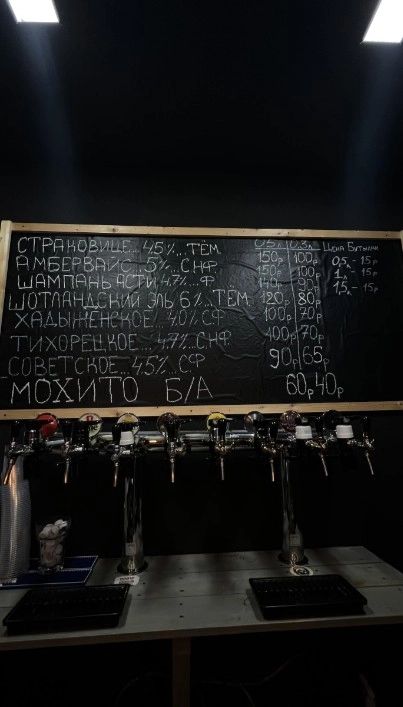 0,5л 0,3л Цена Бутылки
СТРАКОВИЦЕ... 4,5%... ТЁМ. 150р 100р 0,5 - 15р
АМБЕРВАЙС... 5%... С НФ 150р 100р 1л - 15р
ШАМПАНЬ АСТИ 4.7%... Ф. 140р 90р 1.5л - 15р
ШОТЛАНДСКИЙ ЭЛЬ 6%... ТЁМ. 120р 80р
ХАДЫЖЕНСКОЕ... 4.0% С.Ф 100р 70р
ТИХОРЕЦКОЕ.... 4.7% С.НФ. 100р 70р
СОВЕТСКОЕ... 4.5% С.Ф 90р 65р
МОХИТО Б/А 60р 40р